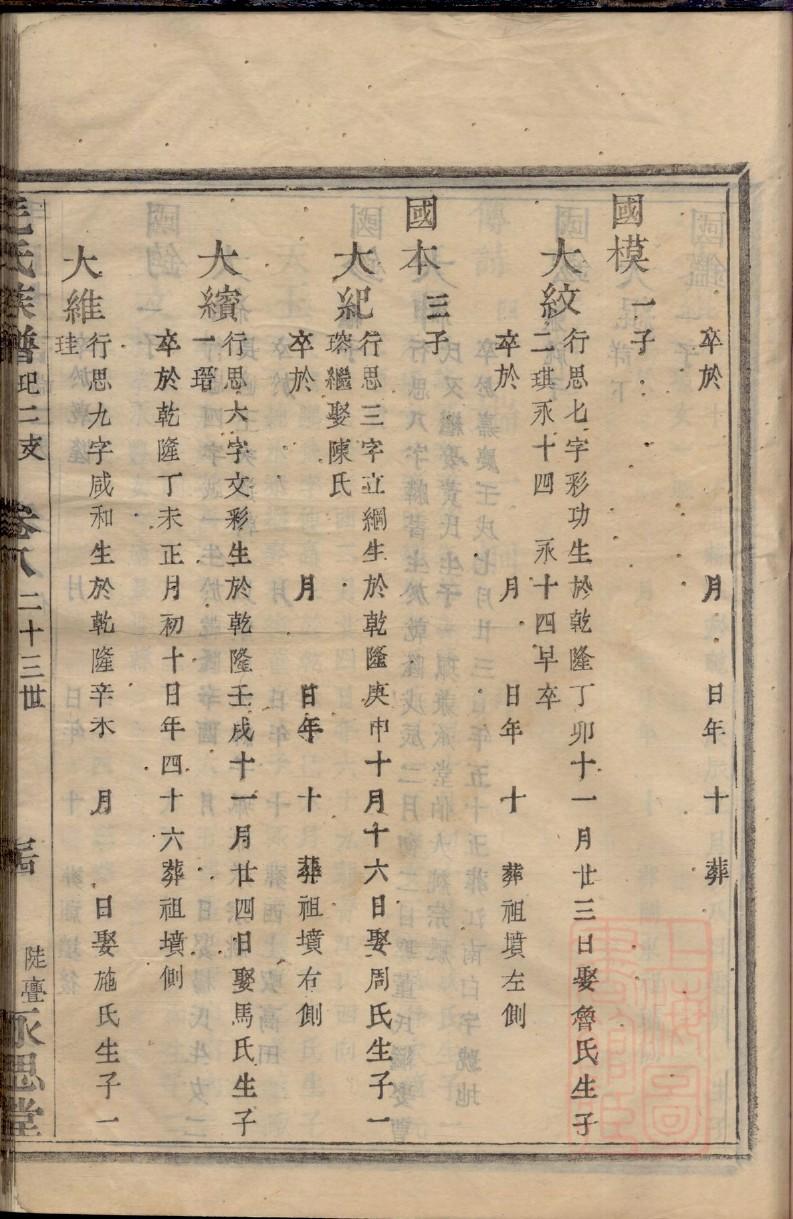 卒於 月 日年 十 葬
國模 一子
大紋 行思七字彩功生於乾隆丁卯十一月廿三日娶魯氏生子
二琪永十四 永十四早卒
卒於 月 日年 十 葬祖墳左側
國本 三子
大紀 行思三字立綱生於乾隆庚申十月十六日娶周氏生子一
琛繼娶陳氏
卒於 月 日年 十 葬祖墳右側
大繽 行思六字文彩生於乾隆壬戌十一月廿四日娶馬氏生子
一瑨
卒於乾隆丁未正月初十日年四十六葬祖墳側
大維 行思九字咸和生於乾隆辛未 月 日娶施氏生子一
珪
氏族譜 卷八 二十三世 永思堂